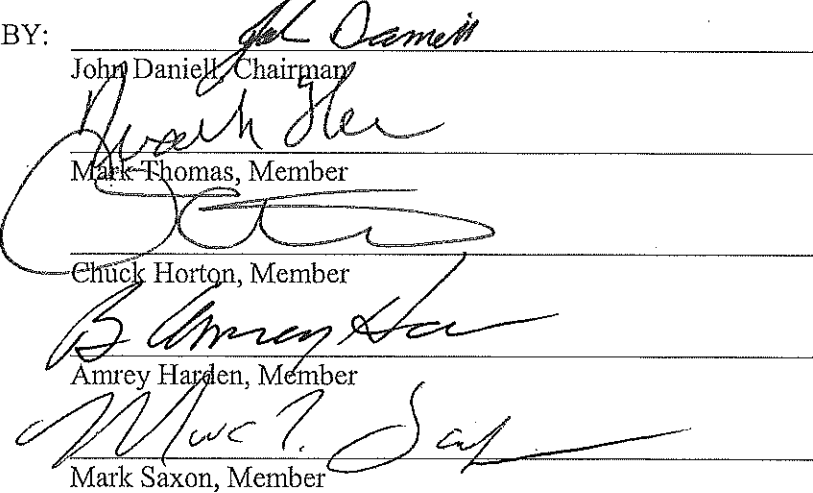 BY: John Daniell
John Daniell, Chairman
Mark Thomas, Member
Chuck Horton, Member
B Amrey Har
Amrey Harden, Member
Marc T. Sax
Mark Saxon, Member